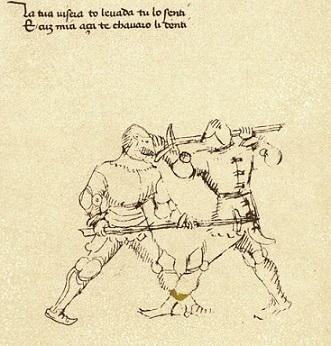 La tua visera to levada tu lo senti
E cuj mia açu te chavaro li denti